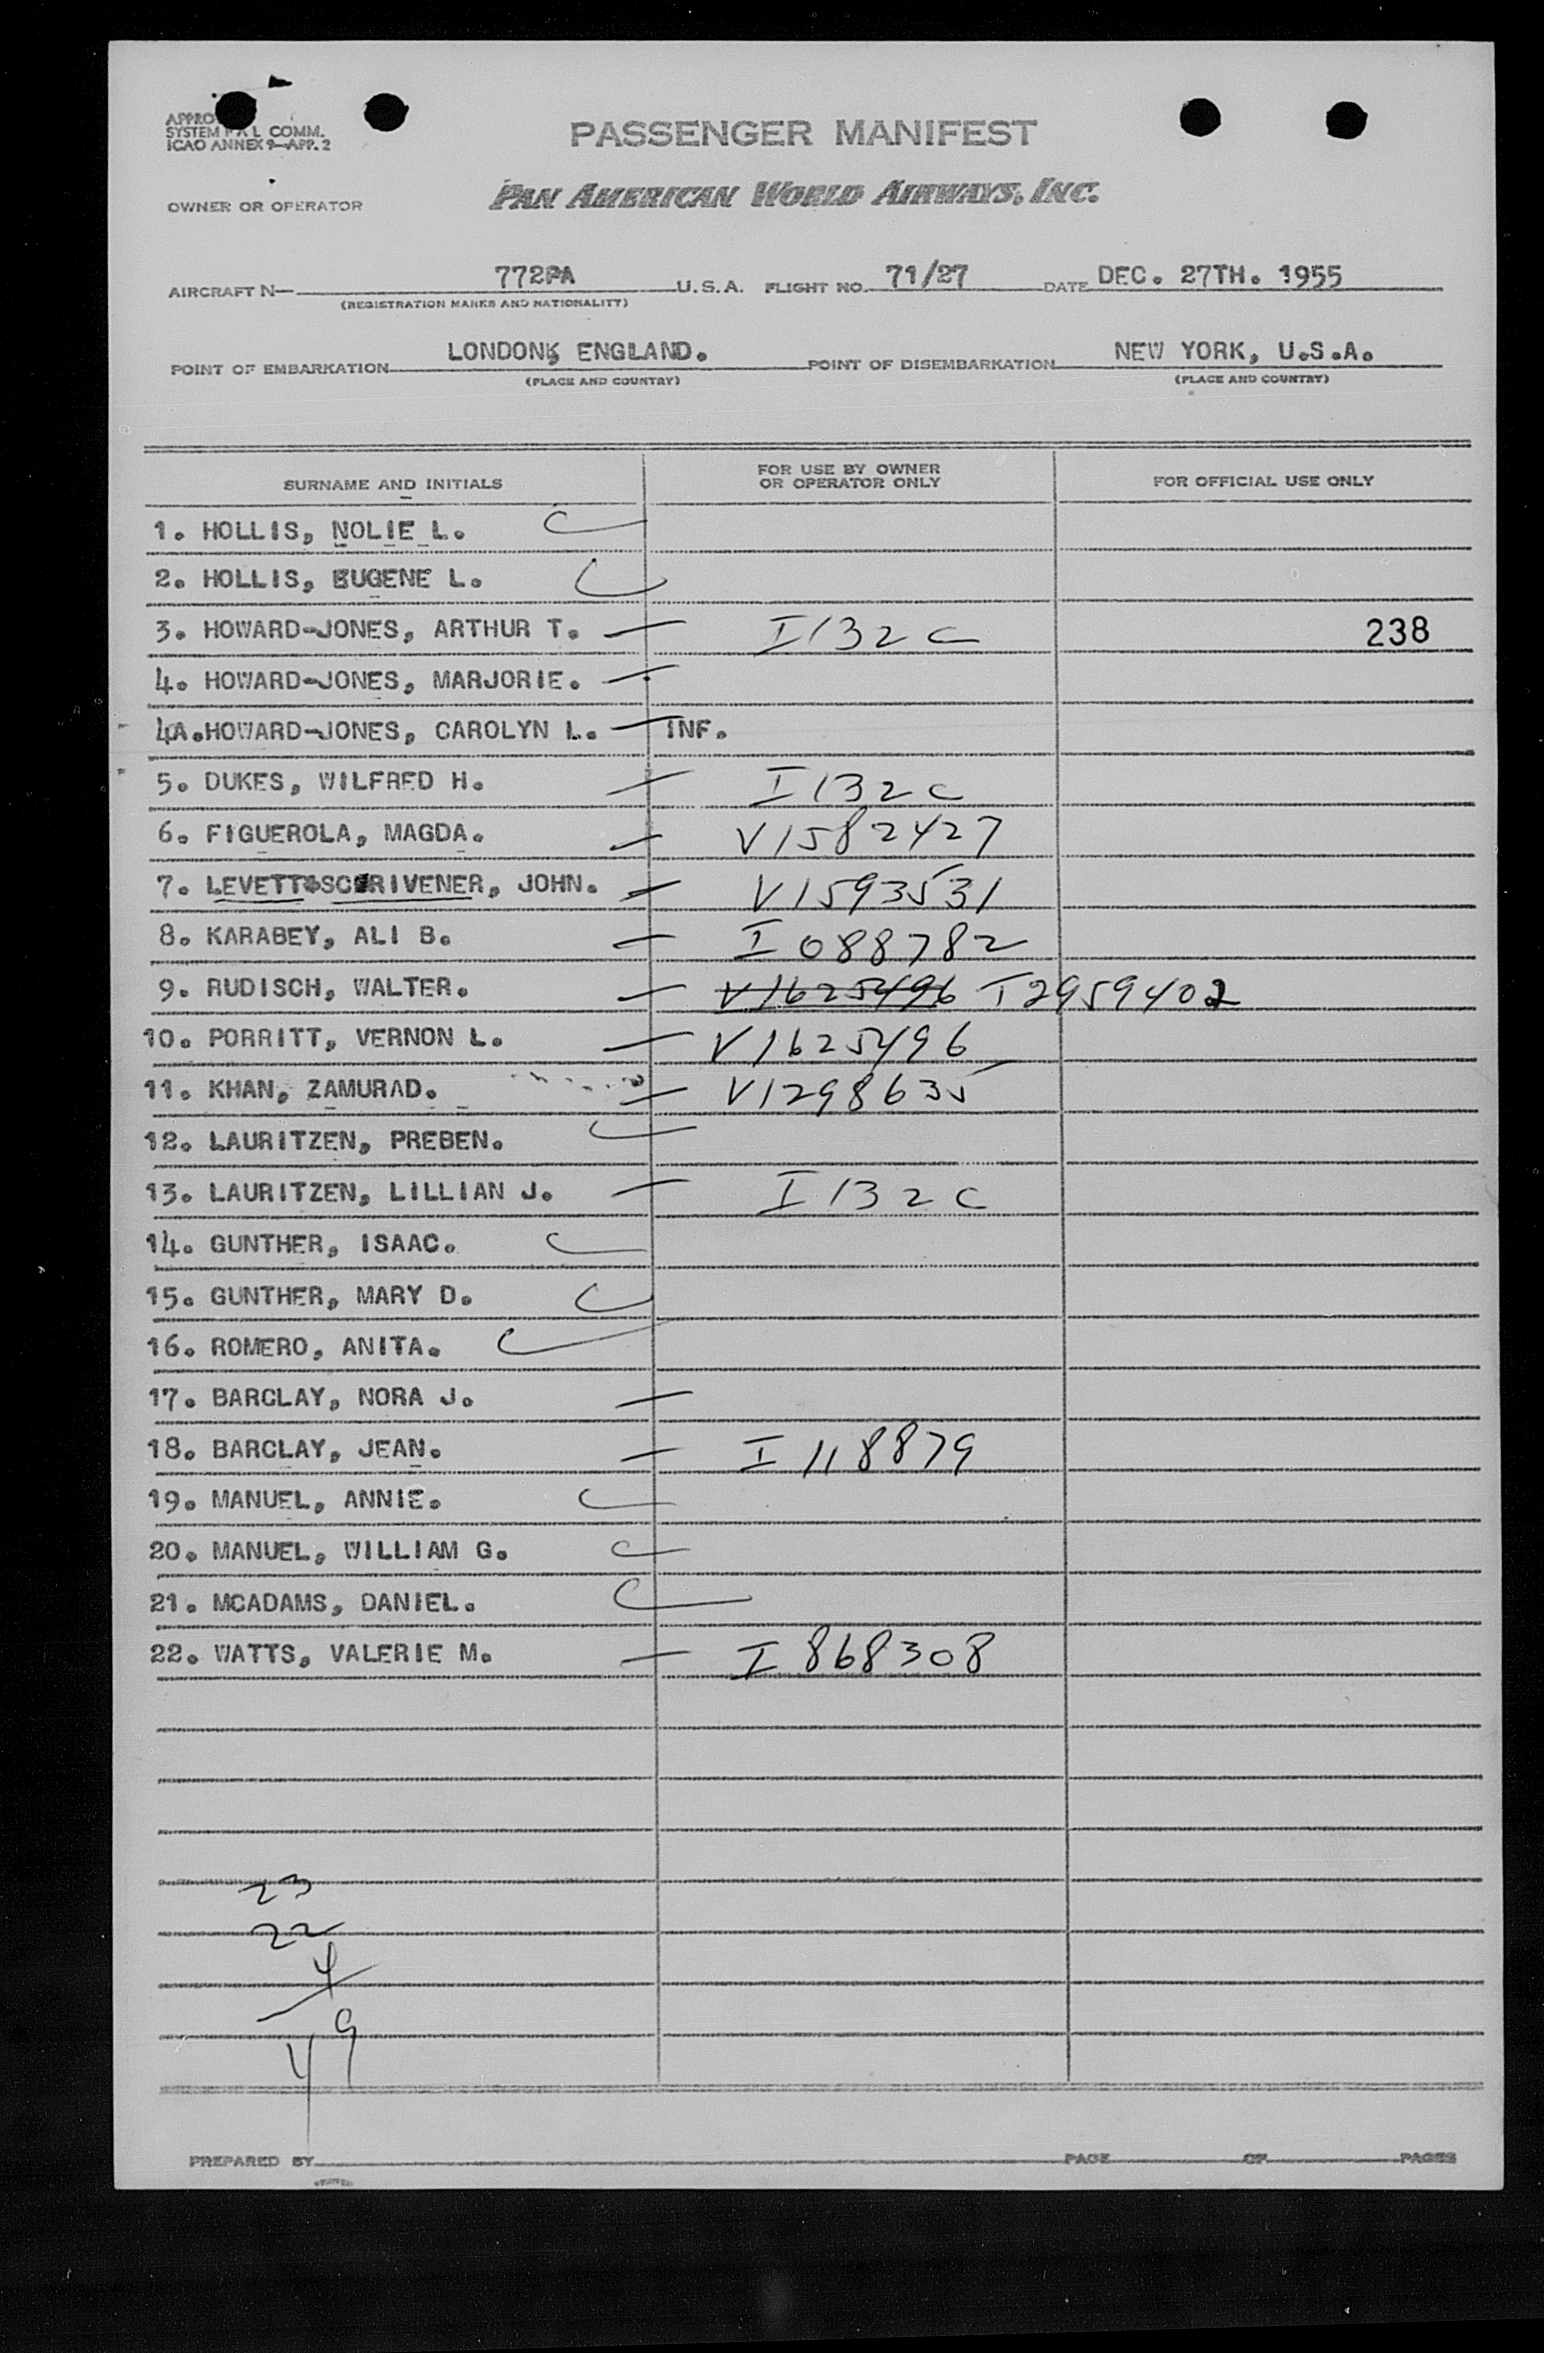 APPRO
SYSTEM F A L COMM.
ICAO ANNEX 9—APP. 2
PASSENGER MANIFEST
OWNER OR OPERATOR PAN AMERICAN WORLD AIRWAYS, INC.
AIRCRAFT N— 772PA U.S.A. FLIGHT NO. 71/27 DATE DEC. 27TH. 1955
(REGISTRATION MARKS AND NATIONALITY)
POINT OF EMBARKATION LONDON, ENGLAND. POINT OF DISEMBARKATION NEW YORK, U.S.A.
(PLACE AND COUNTRY) (PLACE AND COUNTRY)
SURNAME AND INITIALS FOR USE BY OWNER OR OPERATOR ONLY FOR OFFICIAL USE ONLY
1. HOLLIS, NOLIE L.
2. HOLLIS, EUGENE L.
3. HOWARD-JONES, ARTHUR T. — I 132 C 238
4. HOWARD-JONES, MARJORIE. —
4A. HOWARD-JONES, CAROLYN L. — INF.
5. DUKES, WILFRED H. — I 132 C
6. FIGUEROLA, MAGDA. — V1582427
7. LEVETT-SCRIVENER, JOHN. — V1593531
8. KARABEY, ALI B. — I 088782
9. RUDISCH, WALTER. — V1625496 I2959402
10. PORRITT, VERNON L. — V1625496
11. KHAN, ZAMURAD. — V1298635
12. LAURITZEN, PREBEN.
13. LAURITZEN, LILLIAN J. — I 132 C
14. GUNTHER, ISAAC.
15. GUNTHER, MARY D.
16. ROMERO, ANITA.
17. BARCLAY, NORA J. —
18. BARCLAY, JEAN. — I 118879
19. MANUEL, ANNIE.
20. MANUEL, WILLIAM G.
21. MCADAMS, DANIEL.
22. WATTS, VALERIE M. — I 868308
23
22
4
49
PREPARED BY PAGE OF PAGES